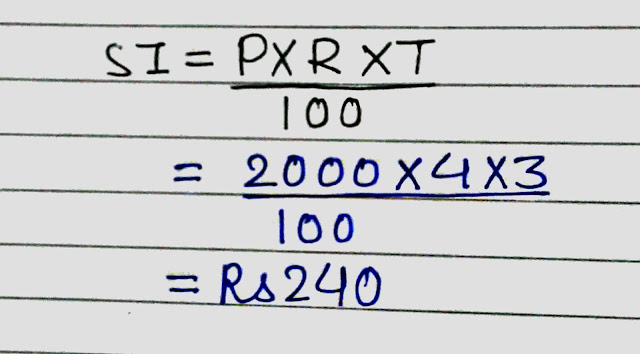 SI = P X R X T
100
= 2000 X 4 X 3
100
= Rs 240